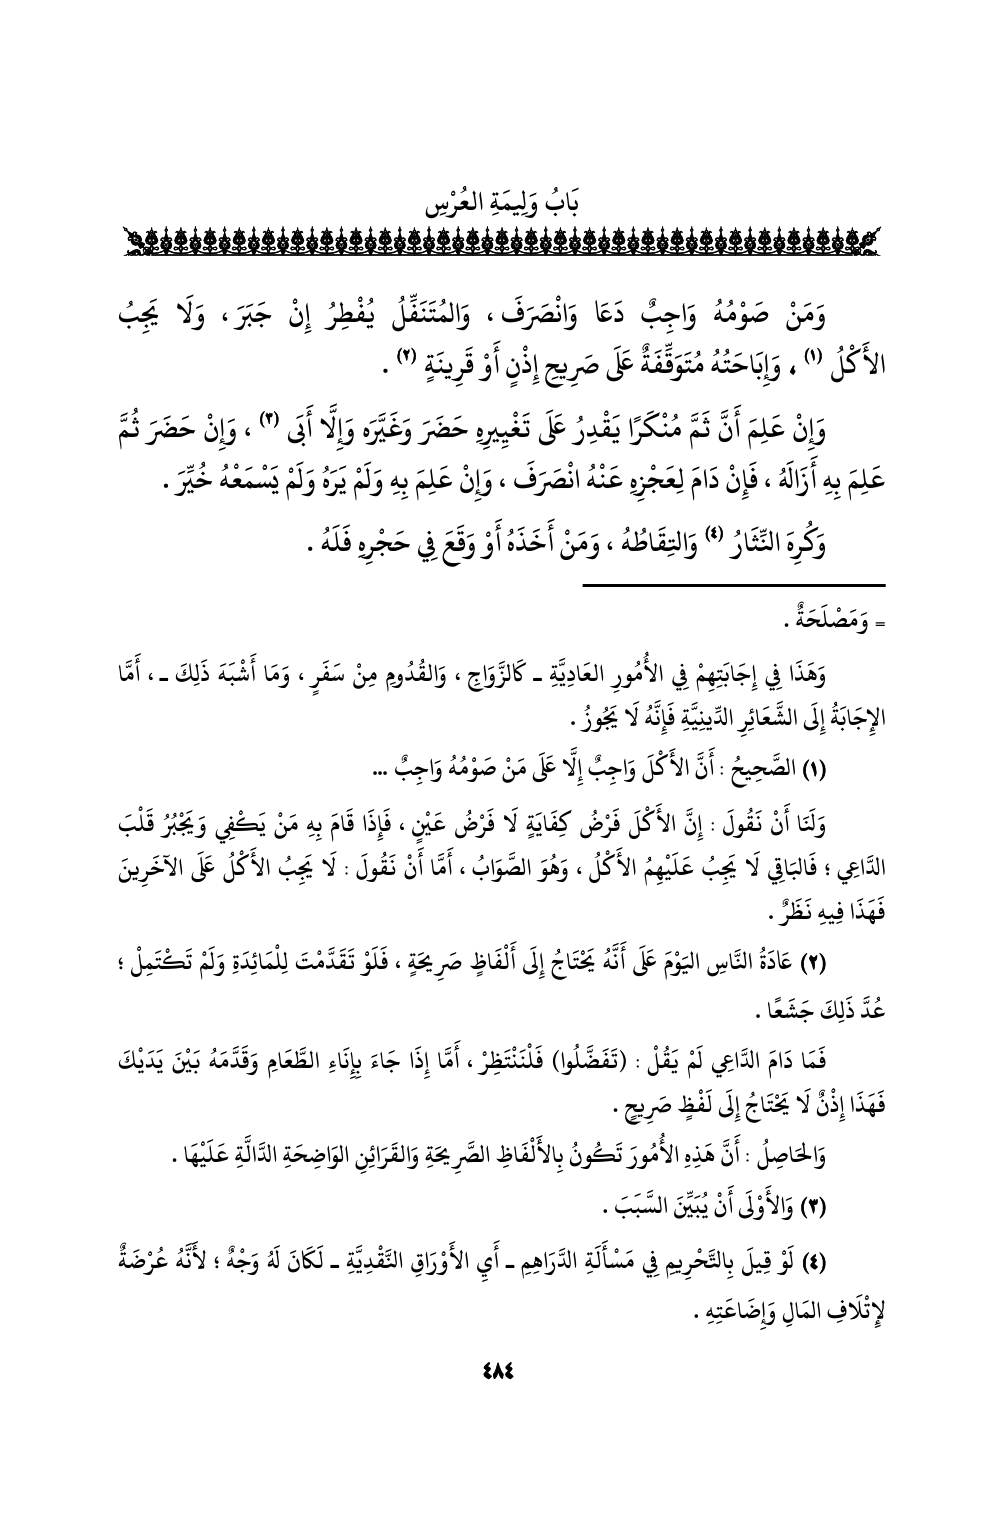 بَابُ وَلِيمَةِ العُرْسِ
وَمَنْ صَوْمُهُ وَاجِبٌ دَعَا وَانْصَرَفَ ، وَالمُتَنَفِّلُ يُفْطِرُ إِنْ جَبَرَ ، وَلَا يَجِبُ
الأَكْلُ (١) ، وَإِبَاحَتُهُ مُتَوَقِّفَةٌ عَلَى صَرِيحِ إِذْنٍ أَوْ قَرِينَةٍ (٢) .
وَإِنْ عَلِمَ أَنَّ ثَمَّ مُنْكَرًا يَقْدِرُ عَلَى تَغْيِيرِهِ حَضَرَ وَغَيَّرَه وَإِلَّا أَبَى (٣) ، وَإِنْ حَضَرَ ثُمَّ
عَلِمَ بِهِ أَزَالَهُ ، فَإِنْ دَامَ لِعَجْزِهِ عَنْهُ انْصَرَفَ ، وَإِنْ عَلِمَ بِهِ وَلَمْ يَرَهُ وَلَمْ يَسْمَعْهُ خُيِّرَ .
وَكُرِهَ النِّثَارُ (٤) وَالتِقَاطُهُ ، وَمَنْ أَخَذَهُ أَوْ وَقَعَ فِي حَجْرِهِ فَلَهُ .
= وَمَصْلَحَةٌ .
وَهَذَا فِي إِجَابَتِهِمْ فِي الأُمُورِ العَادِيَّةِ ـ كَالزَّوَاجِ ، وَالقُدُومِ مِنْ سَفَرٍ ، وَمَا أَشْبَهَ ذَلِكَ ـ ، أَمَّا
الإِجَابَةُ إِلَى الشَّعَائِرِ الدِّينِيَّةِ فَإِنَّهُ لَا يَجُوزُ .
(١) الصَّحِيحُ : أَنَّ الأَكْلَ وَاجِبٌ إِلَّا عَلَى مَنْ صَوْمُهُ وَاجِبٌ ...
وَلَنَا أَنْ نَقُولَ : إِنَّ الأَكْلَ فَرْضُ كِفَايَةٍ لَا فَرْضُ عَيْنٍ ، فَإِذَا قَامَ بِهِ مَنْ يَكْفِي وَيَجْبُرُ قَلْبَ
الدَّاعِي ؛ فَالبَاقِي لَا يَجِبُ عَلَيْهِمُ الأَكْلُ ، وَهُوَ الصَّوَابُ ، أَمَّا أَنْ نَقُولَ : لَا يَجِبُ الأَكْلُ عَلَى الآخَرِينَ
فَهَذَا فِيهِ نَظَرٌ .
(٢) عَادَةُ النَّاسِ اليَوْمَ عَلَى أَنَّهُ يَحْتَاجُ إِلَى أَلْفَاظٍ صَرِيحَةٍ ، فَلَوْ تَقَدَّمْتَ لِلْمَائِدَةِ وَلَمْ تَكْتَمِلْ ؛
عُدَّ ذَلِكَ جَشَعًا .
فَمَا دَامَ الدَّاعِي لَمْ يَقُلْ : (تَفَضَّلُوا) فَلْنَنْتَظِرْ ، أَمَّا إِذَا جَاءَ بِإِنَاءِ الطَّعَامِ وَقَدَّمَهُ بَيْنَ يَدَيْكَ
فَهَذَا إِذْنٌ لَا يَحْتَاجُ إِلَى لَفْظٍ صَرِيحٍ .
وَالحَاصِلُ : أَنَّ هَذِهِ الأُمُورَ تَكُونُ بِالأَلْفَاظِ الصَّرِيحَةِ وَالقَرَائِنِ الوَاضِحَةِ الدَّالَّةِ عَلَيْهَا .
(٣) وَالأَوْلَى أَنْ يُبَيِّنَ السَّبَبَ .
(٤) لَوْ قِيلَ بِالتَّحْرِيمِ فِي مَسْأَلَةِ الدَّرَاهِمِ ـ أَيِ الأَوْرَاقِ النَّقْدِيَّةِ ـ لَكَانَ لَهُ وَجْهٌ ؛ لأَنَّهُ عُرْضَةٌ
لِإِتْلَافِ المَالِ وَإِضَاعَتِهِ .
٤٨٤